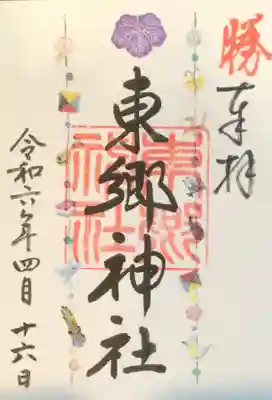 勝
奉拝
東郷神社
東郷神社
令和六年四月十六日